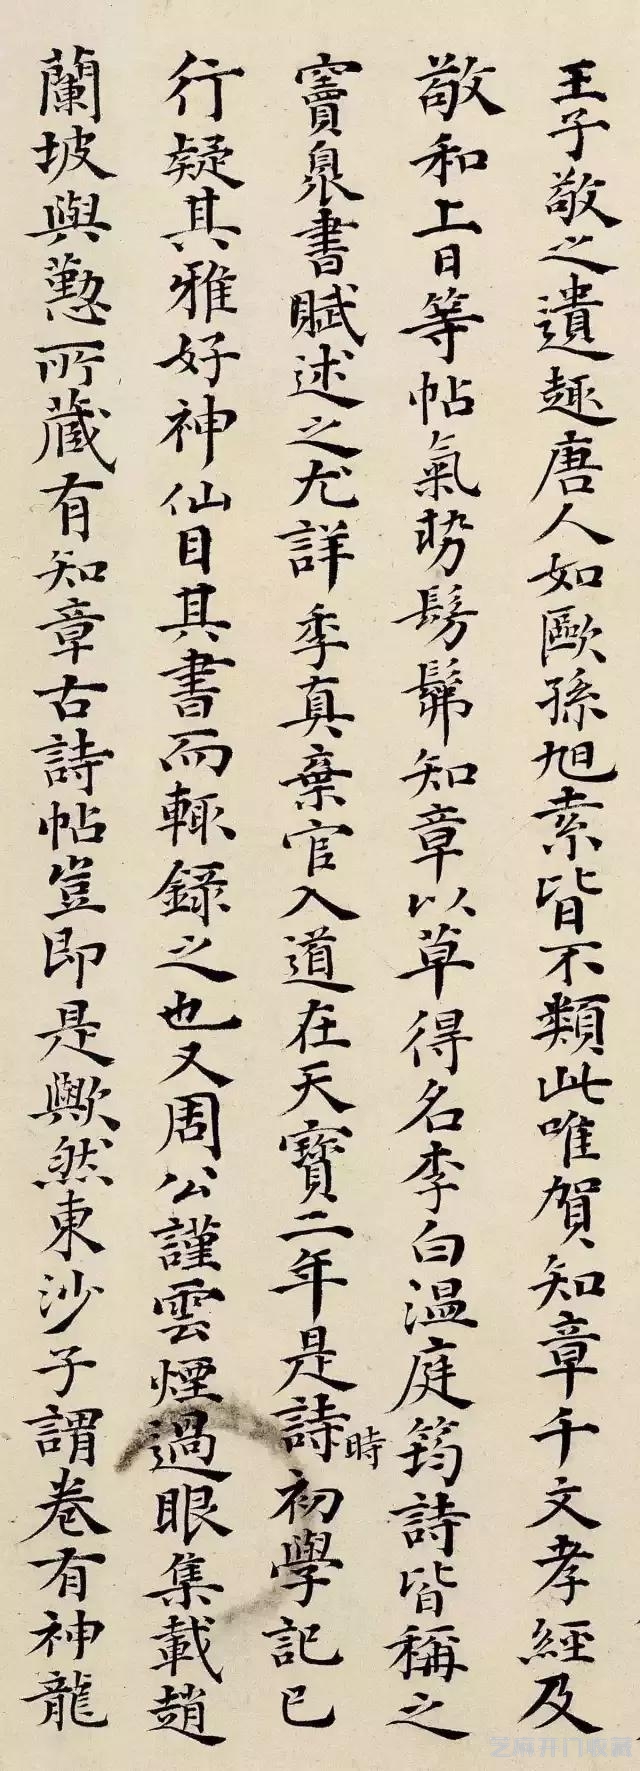 王子敬之遺趣唐人如歐孫旭素皆不類此唯賀知章千文孝經及
敬和上日等帖氣勢髣髴知章以草得名李白温庭筠詩皆稱之
竇臮書賦述之尤詳季真棄官入道在天寶二年是詩初學記已
時
行疑其雅好神仙目其書而輒録之也又周公謹雲煙過眼集載趙
蘭坡與懃所藏有知章古詩帖豈即是歟然東沙子謂卷有神龍
芝麻开门收藏